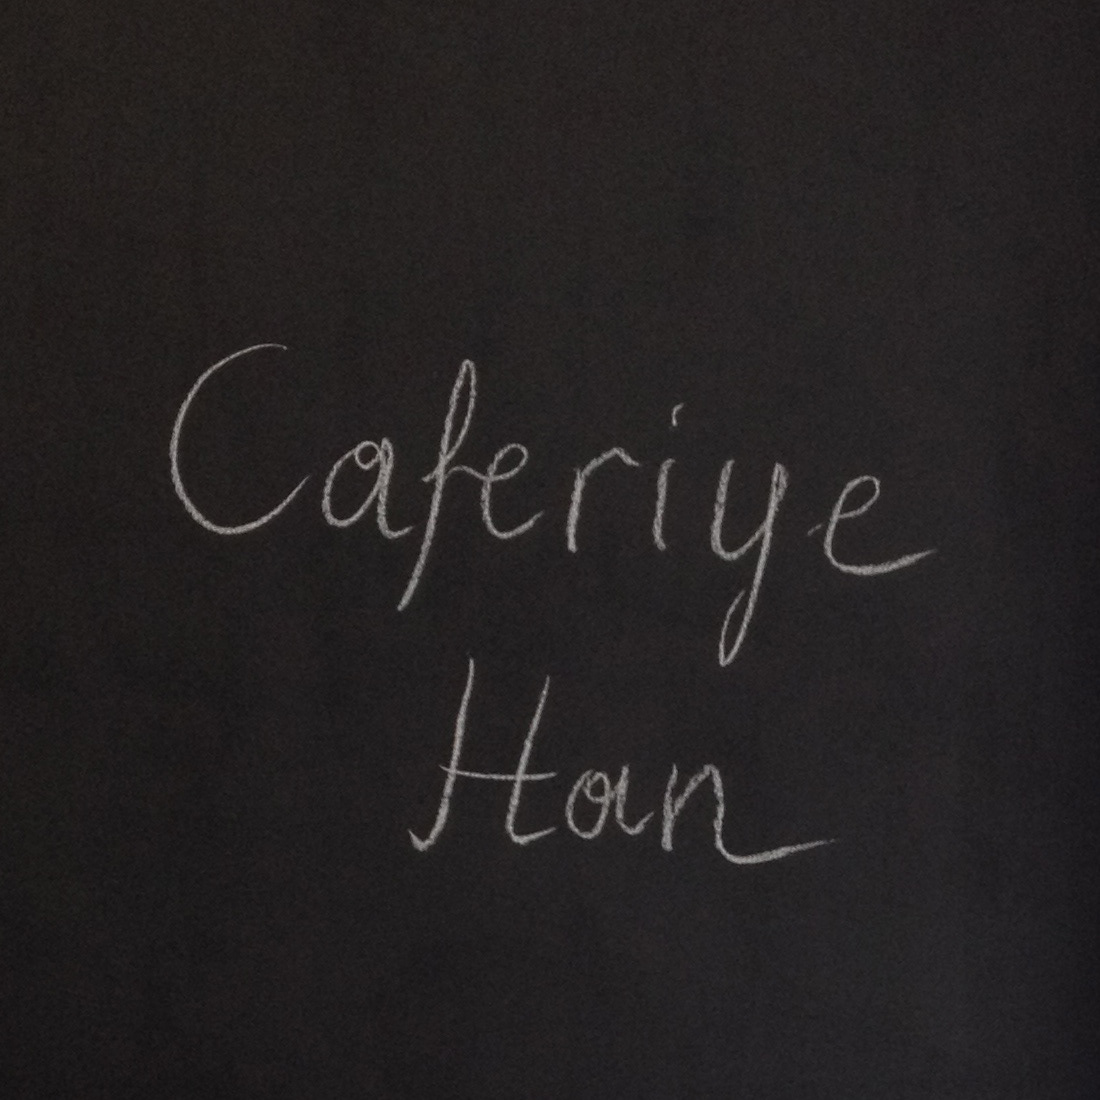 Caferiye
Han